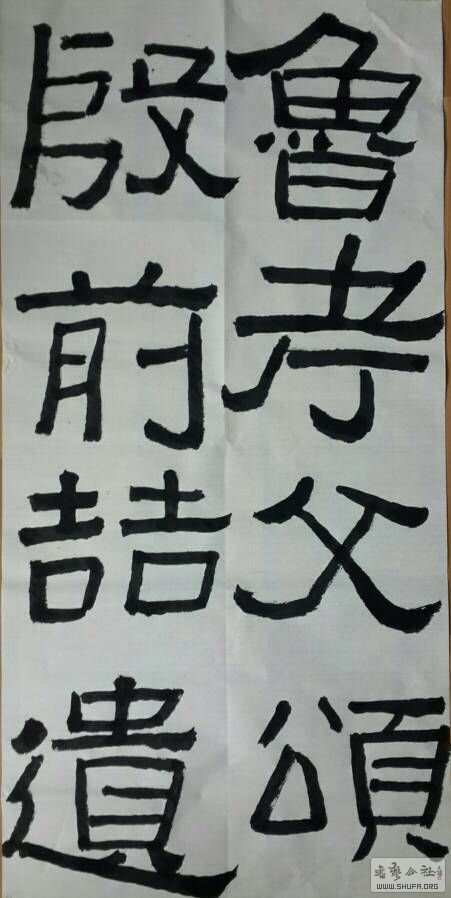 魯考父頌
殷前喆遺
书艺公社
WWW.SHUFA.ORG